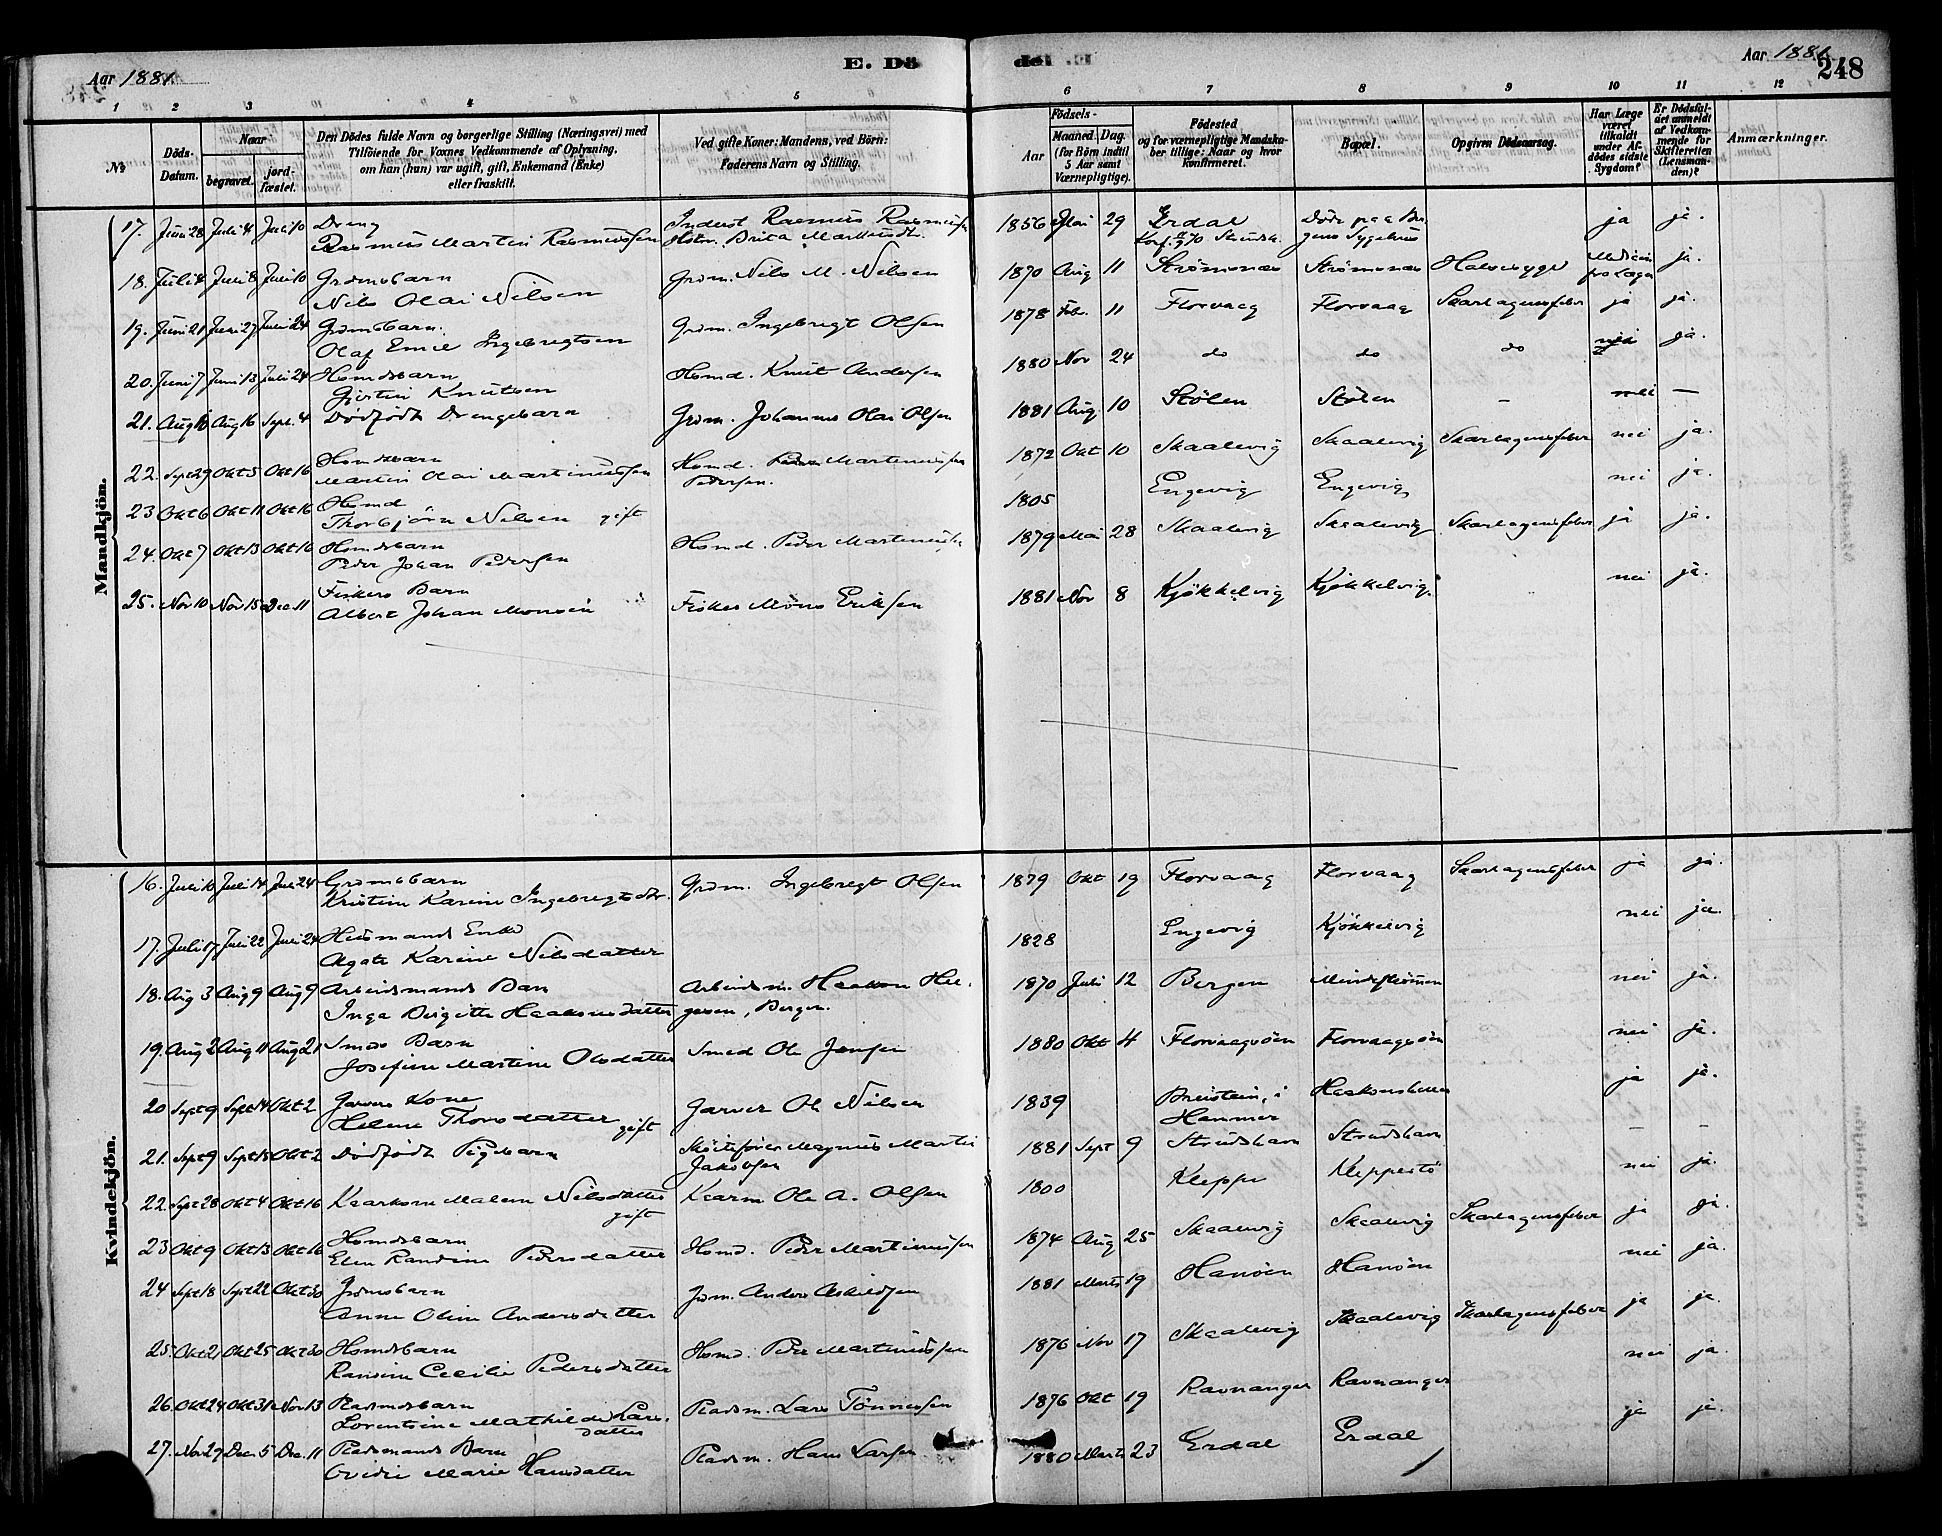 Aar 1881.
E. Dö
del
Aar 1881.
248
1 2 3 4 5
6 7 8 9 10 11 12
No
Döds-Datum.
Naar
begravet.
jord-fæstet.
Den Dödes fulde Navn og borgerlige Stilling (Næringsvei) med
Tilföiende for Voxnes Vedkommende af Oplysning,
om han (hun) var ugift, gift, Enkemand (Enke)
eller fraskilt.
Ved gifte Koner: Mandens, ved Börn:
Faderens Navn og Stilling.
Födsels-
Aar
Maaned. Dag.
(for Börn indtil
5 Aar samt
Værnepligtige).
Födested
og for værnepligtige Mandska-
ber tillige: Naar og hvor
konfirmeret.
Bopæl.
Opgiven Dödsaarsag.
Har Læge
været
tilkaldt
under Af-
dödes sidste
Sygdom?
Er Dödsfal-
det anmeldt
af Vedkom-
mende for
Skifteretten
(Lensman-
den)?
Anmærkninger.
Mandkjön.
17. Juni 28 Juli 4 Juli 10 Dreng Inderst Rasmus Rasmussen 1856 Mai 29 Erdal Döde paa Ber- ja ja.
Rasmus Martin Rasmussen Brita Marku gens Sygehus
18. Juli 4 Juli 8 Juli 10 Grdmsbarn Grdm. Nils M. Nilsen 1870 Aug 11 Strömsnes Strömsnes Halssyge Medicin ja.
Nils Olai Nilsen fra Lægen
19. Juni 21 Juni 27 Juli 24 Grdmsbarn. Grdm. Ingebregt Olsen 1878 Feb. 11 Florvaag Florvaag Skarlagensfeber ja ja.
Olaf Emil Ingebregtsen
20. Juni 7 Juni 13 Juli 24 Hsmdsbarn Hsmd. Knut Andersen 1880 Nov 24 do do do nei ja.
Knutsen
21. Aug 10 Aug 16 Sept. 4 Dödfödt Drengebarn Grdm. Johannes Olai Olsen 1881 Aug. 10 Stölen Stölen - nei —
22. Sept 29 Okt 5 Okt 16 Hsmdsbarn Hsmd. Peder Martinussen 1872 Okt 10 Skaalevig Skaalevig Skarlagensfeber nei ja.
Martin Olai Martinussen Pedersen.
23 Okt 6 Okt 11 Okt 16 Hsmd 1805 Engevig Engevig nei ja.
Thorbjörn Nilsen gift
24. Okt 7 Okt 13 Okt 16 Hsmdsbarn Hsmd. Peder Martinussen 1879 Mai 28 Skaalevig Skaalevig Skarlagensfeber ja ja.
Peder Johan Pedersen
25. Nov 10 Nov 15 Dec 11 Fiskers Barn Fisker Mons Eriksen 1881 Nov 8 Kjökkelvig Kjökkelvig. nei ja.
Albert Johan Monsen
Kvindekjön.
16. Juli 10 Juli 14 Juli 24 Grdmsbarn Grdm. Ingebregt Olsen 1879 Okt 19 Florvaag Florvaag Skarlagensfeber ja ja.
Kristine Karine Ingebregtsdtr.
17. Juli 17 Juli 22 Juli 24 Husmands Enke 1828 Engevig Kjökkelvig nei ja.
Agate Karine Nilsdatter
18. Aug 3 Aug 9 Aug 9 Arbeidsmands Barn Arbeidsm. Haakon Hel- 1870 Juli 12 Bergen Mindeströmmen nei ja.
Inga Birgitte Haakonsdatter gesen, Bergen.
19. Aug 2 Aug 11 Aug 21 Smeds Barn Smed Ole Jensen 1880 Okt 4 Florvaagöen Florvaagöen nei ja.
Josefine Martine Olsdatter
20 Sept 9 Sept 14 Okt 2 Garvers Kone Garver Ole Nilsen 1839 Breistein, i Haakonshellen ja ja.
Helene Thorsdatter gift Hammer
21. Sept 9 Sept 15 Okt 2 Dödfödt Pigebarn Sköitefører Magnus Martin 1881 Sept 9 Strudshavn Strudshavn - -
Jakobsen
22. Sept 28 Okt 4 Okt 16 Kaarkone Malene Nilsdatter Kaarm Ole A. Olsen 1800 Kleppe Kleppestö nei ja.
gift
23 Okt 9 Okt 13 Okt 16 Hsmdsbarn Hsmd. Peder Martinussen 1874 Aug 25 Skaalevig Skaalevig Skarlagensfeber ja ja.
Elen Randine Pedersdatter
24 Sept 18 Sept 22 Okt 30 Grdmsbarn Grdm. Anders Askildsen 1881 Marts 19 Hanöen Hanöen nei ja.
Anne Oline Andersdatter
25. Okt 21 Okt 25 Okt 30 Hsmdsbarn Hsmd. Peder Martinussen 1876 Nov 17 Skaalevig Skaalevig Skarlagensfeber ja ja.
Cecilie Pedersdatter
26. Okt 24 Okt 31 Nov 13 Pladsmdsbarn Pladsm. Lars Tönnesen 1876 Okt 19 Ravnanger Ravnanger nei ja
Lorentsine Mathilde Lars-
datter
27. Nov 29 Dec 5 Dec. 11 Pladsmands Barn Pladsm. Hans Larsen 1880 Marts 23 Erdal Erdal ja ja.
Ovidie Marie Hansdatter